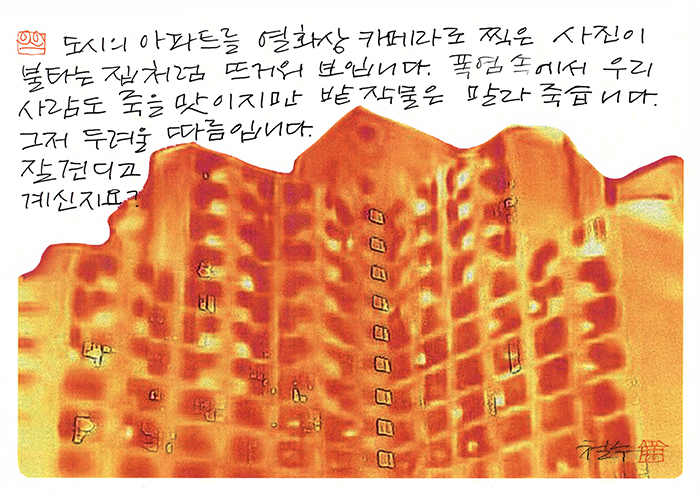 도시의 아파트를 열화상 카메라로 찍은 사진이
불타는 집처럼 뜨거워 보입니다. 폭염 속에서 우리
사람도 죽을 맛이지만 밭 작물은 말라 죽습니다.
그저 두려울 따름입니다.
잘 견디고
계신지요?
철수